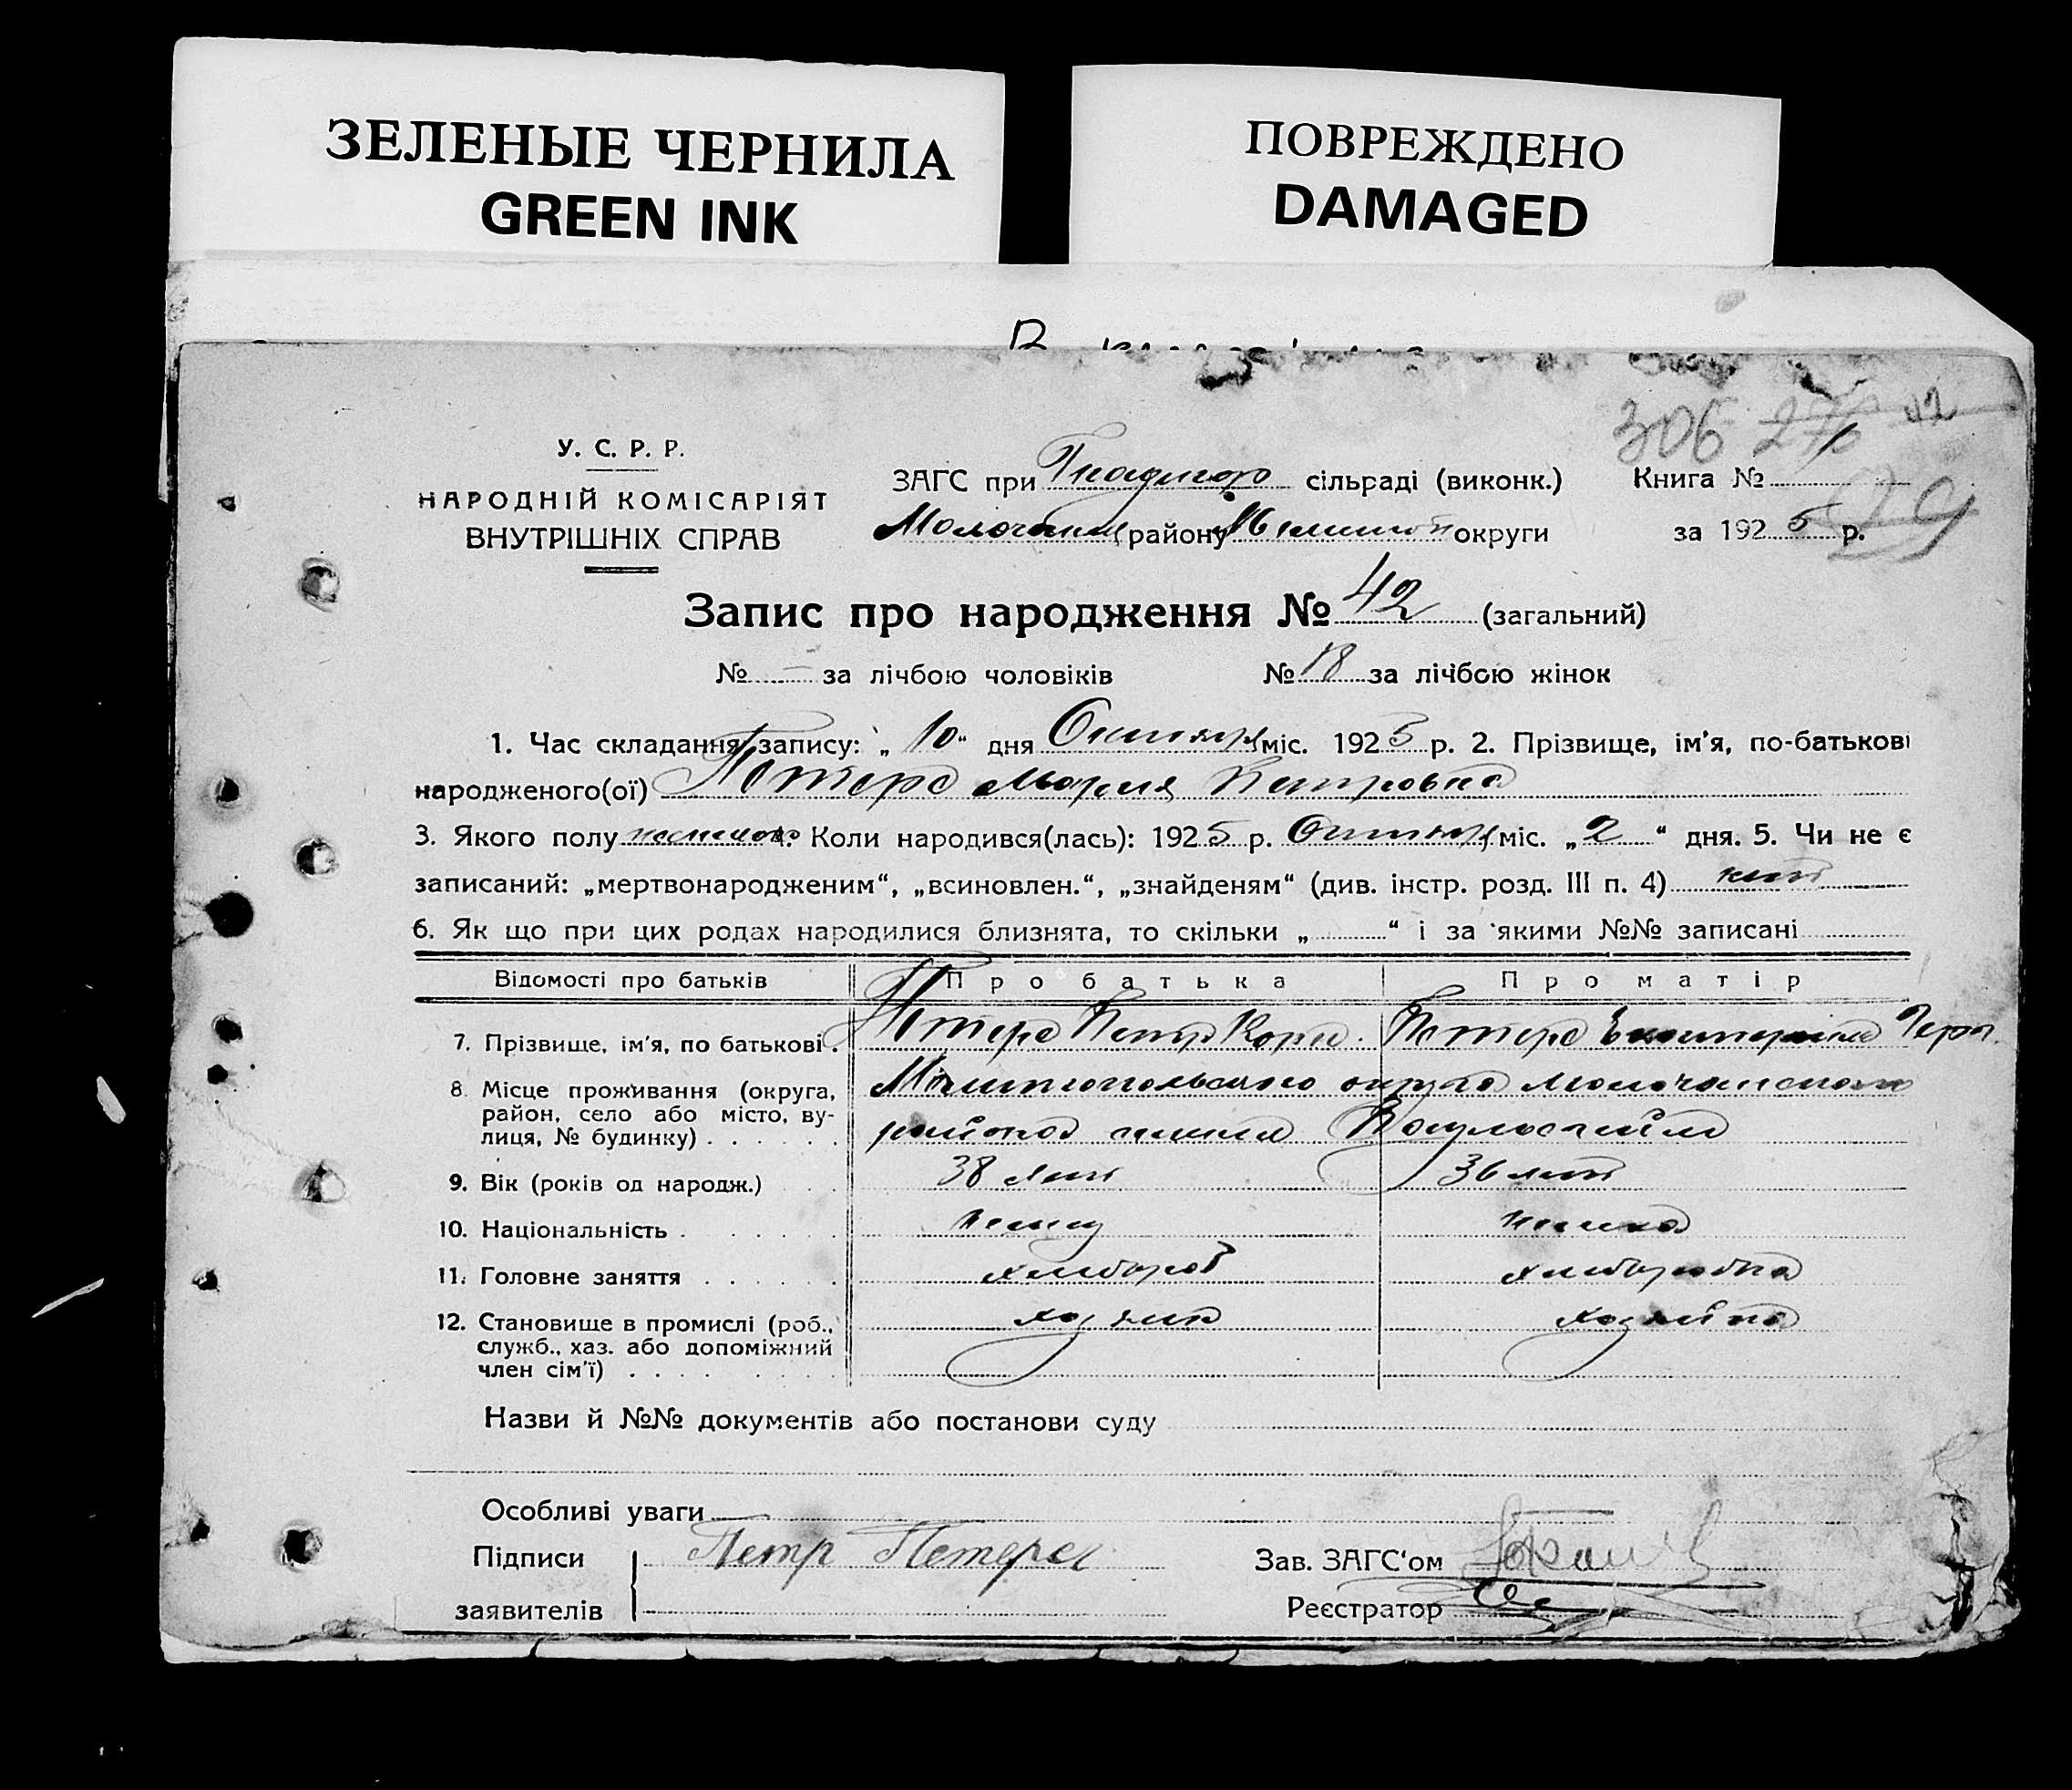 ЗЕЛЕНЫЕ ЧЕРНИЛА
GREEN INK
ПОВРЕЖДЕНО
DAMAGED
306 276 42
29
У. С. Р. Р.
НАРОДНІЙ КОМІСАРІЯТ
ВНУТРІШНІХ СПРАВ
ЗАГС при сільраді (виконк.)
района округи
Книга №
за 1925 р.
Запис про народження № 42 (загальний)
№ – за лічбою чоловіків № 18 за лічбою жінок
1. Час складання запису: „10“ дня Октября міс. 1925 р. 2. Прізвище, ім'я, по-батькові
народженого(ої) Петерс Мария Петровна
3. Якого полу женского 4. Коли народився(лась): 1925 р. Октября міс. „2“ дня. 5. Чи не є
записаний: „мертвонародженим“, „всиновлен.“, „знайденям“ (див. інстр. розд. III п. 4) нет
6. Як що при цих родах народилися близнята, то скільки „ “ і за якими №№ записані
Відомості про батьків Про батька Про матір
7. Прізвище, ім'я, по батькові. Петерс Петр Корн. Петерс Екатерина Герг.
8. Місце проживання (округа, район, село або місто, вулиця, № будинку) Мелитопольского округа Молочанского
района
9. Вік (років од народж.) 38 лет 36 лет
10. Національність немец немка
11. Головне заняття хлебороб хлеборобка
12. Становище в промислі (роб., служб., хаз. або допоміжний член сім'ї) хозяин хозяйка
Назви й №№ документів або постанови суду
Особливі уваги
Підписи Петр Петерс
заявителів
Зав. ЗАГС'ом
Реєстратор